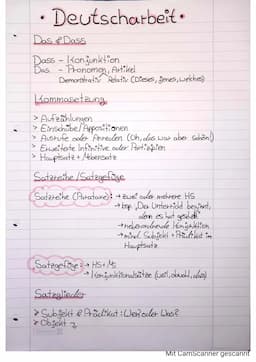 • Deutscharbeit •
Das & Dass
Dass - Konjunktion
Das - Pronomen, Artikel
Demonstrativ Relativ (Dieses, jenes, welches)
Kommasetzung
> Aufzählungen
> Einschübe/Appositionen
> Ausrufe oder Anreden (Oh, das war aber schön!)
> Erweiterte Infinitive oder Partizipien
> Hauptsatz + Nebensatz
Satzreihe/Satzgefüge
Satzreihe (Parataxe): → zwei oder mehrere HS
→ bsp. „Der Unterricht beginnt,
denn es hat geschellt"
→ nebenordnende Konjunktion
→ mind. Subjekt + Prädikat im
Hauptsatz
Satzgefüge: → HS + NS
→ Konjunktionalsätze (weil, obwohl, dass)
Satzglieder
> Subjekt & Prädikat: Wer oder Was?
> Objekt
Mit CamScanner gescannt